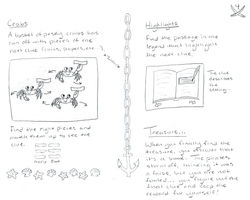 Crabs
A basket of pesky crabs has
run off with pieces of the
next clue
Find the right pieces and
match them up to see the
clue.
Highlights
Find the passage in the
legend that highlights
the next clue.
The clue
describes
the
setting.
Treasure...
When you finally find the
treasure, you discover that
it's a book. The pirates
story of, thinking it was
a fake, but you are not
fooled... you figure out the
final clue and keep the
reward for yourself!